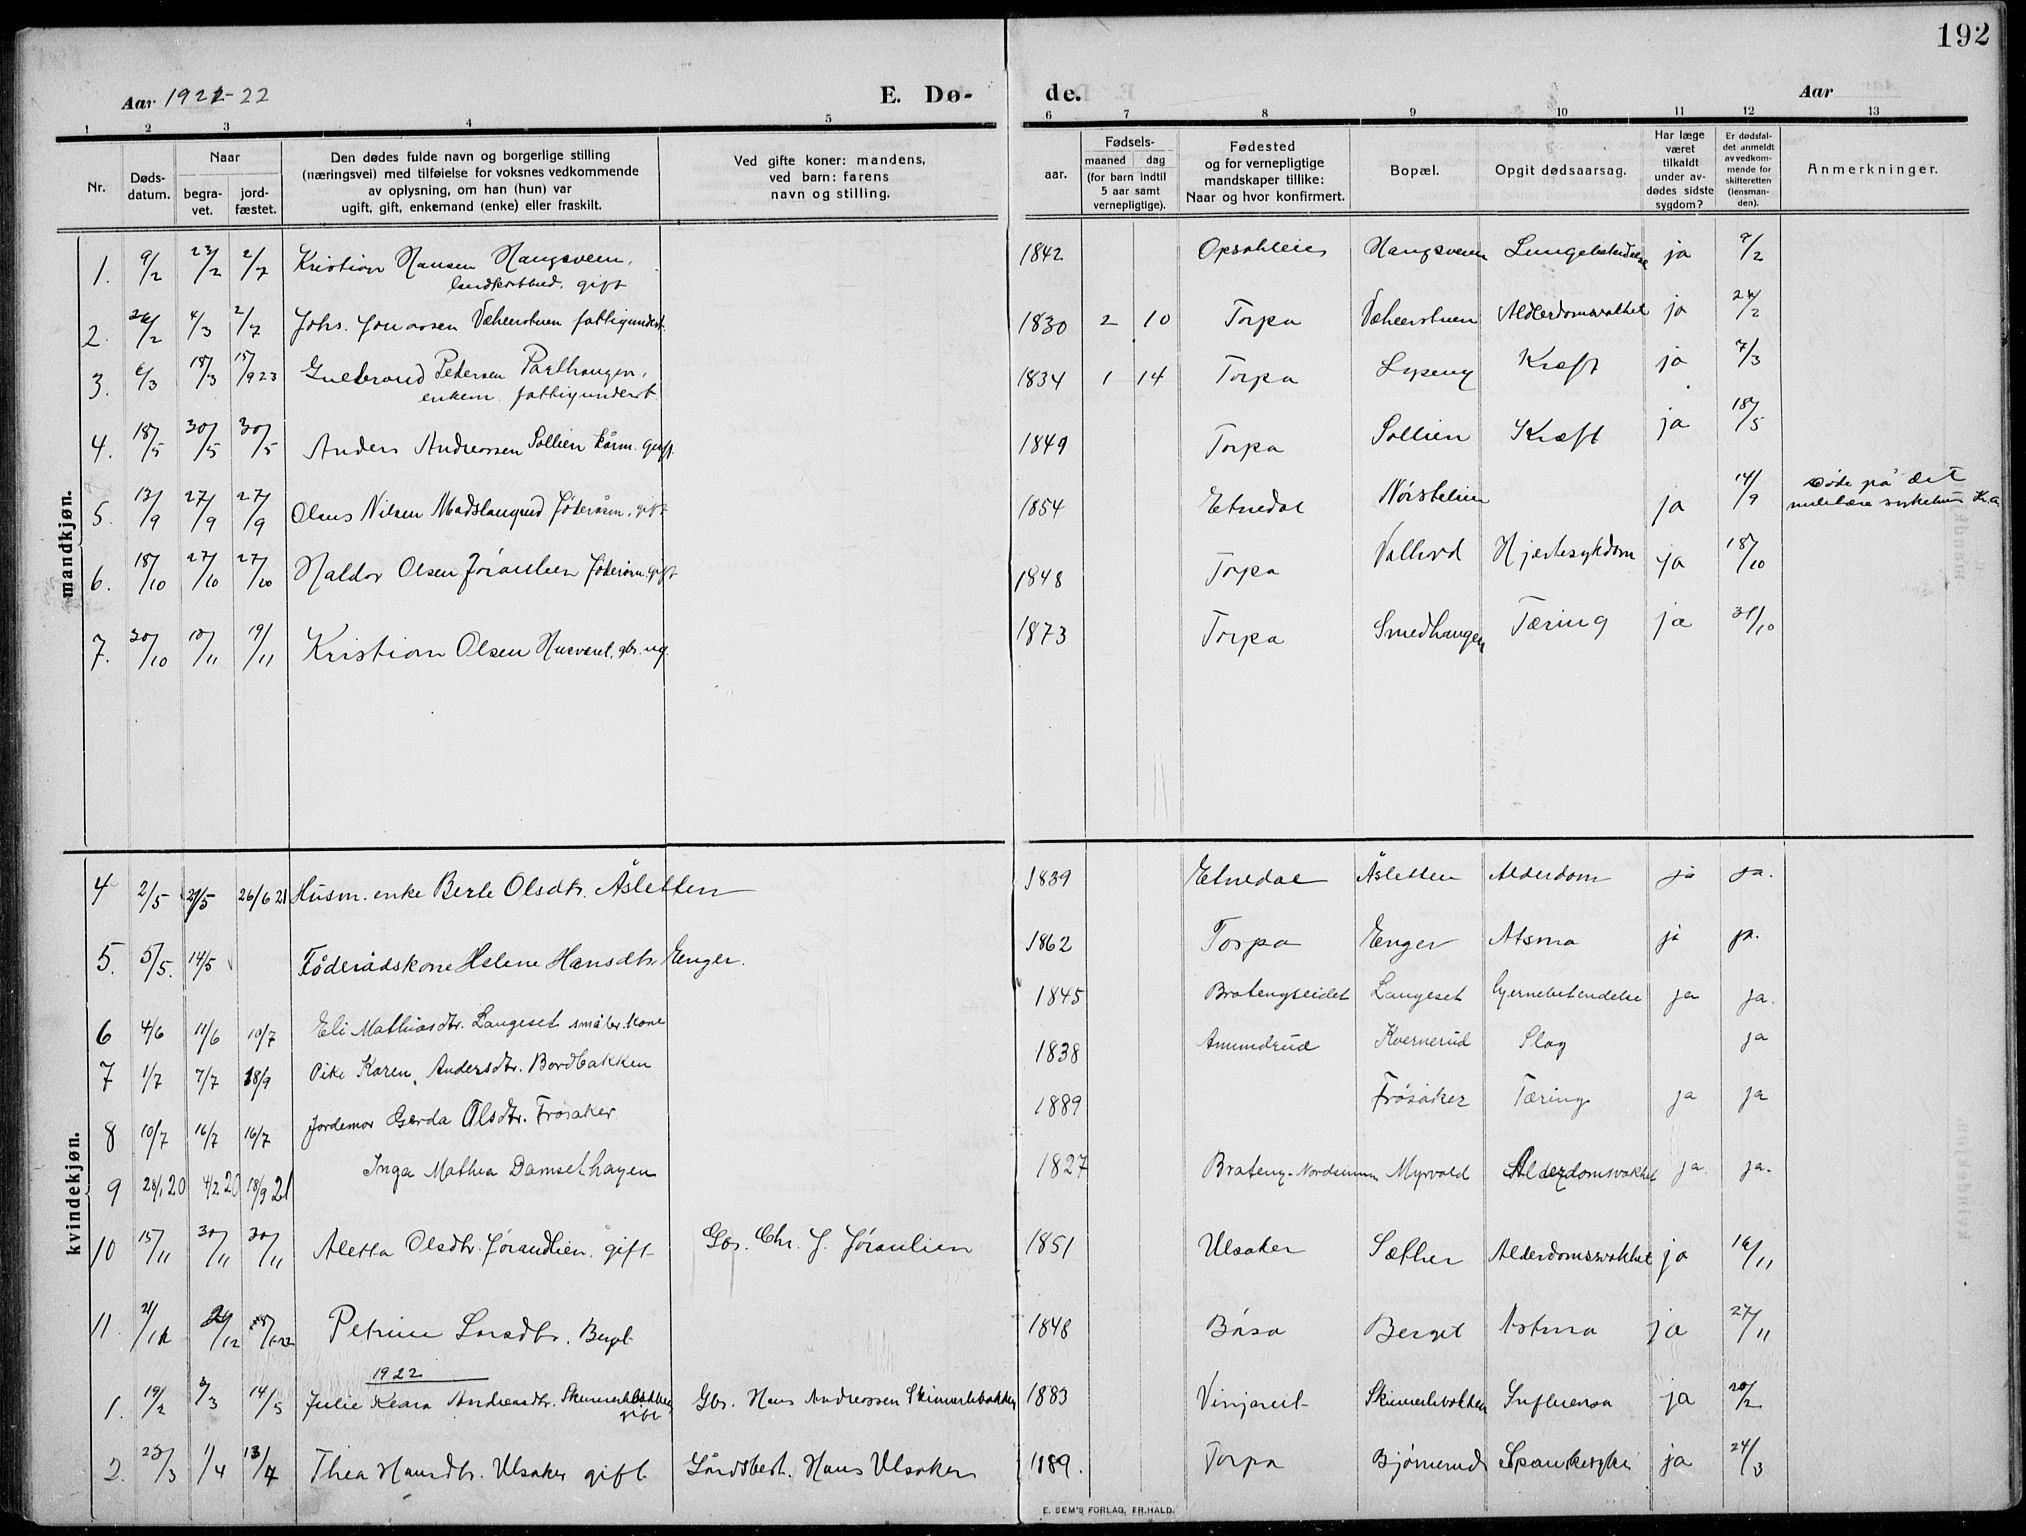 192
Aar 1921-22 E. Dø- de. Aar
1 2 3 4 5 6 7 8 9 10 11 12 13
Nr.
Døds-
datum.
Naar
begra-
vet.
jord-
fæstet.
Den dødes fulde navn og borgerlige stilling
(næringsvei) med tilføielse for voksnes vedkommende
av oplysning, om han (hun) var
ugift, gift, enkemand (enke) eller fraskilt.
Ved gifte koner: mandens,
ved barn: farens
navn og stilling.
aar.
Fødsels-
maaned dag
(for barn indtil
5 aar samt
vernepligtige).
Fødested
og for vernepligtige
mandskaper tillike:
Naar og hvor konfirmert.
Bopæl.
Opgit dødsaarsag.
Har læge
været
tilkaldt
under av-
dødes sidste
sygdom?
Er dødsfal-
det anmeldt
av vedkom-
mende for
skifteretten
(lensman-
den).
Anmerkninger.
mandkjøn.
1. 9/2 23/2 2/7 Kristian Hansen Haugsveen, 1842 Opsahleie Haugsveen Lungebetendelse ja 9/2
gift
2. 26/2 4/3 2/7 Johs. Jonassen fattigunderst. 1830 2 10 Torpa Alderdomsvakhet ja 26/2
3. 6/3 18/3 15/9 23 Gulbrand Pedersen 1834 1 14 Torpa Kræft ja 7/3
enkem. fattigunderst.
4. 18/5 30/5 30/5 Anders Andreassen Sollien kårm. gift. 1849 Torpa Sollien Kræft ja 18/5
5. 13/9 27/9 27/9 Olaus Nilsen Madslangrud føderåm. gift 1854 Etnedal Nørstelien ja 14/9 Døde på det
militære sykehus Kr.a
6. 18/10 27/10 27/10 Haldor Olsen Jørandlien føderåm. gift 1848 Torpa Valhovd Hjertesykdom ja 18/10
7. 30/10 10/11 19/11 Kristian Olsen ug. 1873 Torpa Smedhaugen Tæring ja 31/10
kvindekjøn.
4 2/5 21/5 26/6 21 Husm. enke Berte Olsdtr. Åsletten 1839 Etnedal Åsletten Alderdom ja ja.
5. 5/5. 14/5 Føderådskone Helene Hansdtr. Enger. 1862 Torpa Enger Atsma ja ja.
6 4/6 11/6 10/7 Eli Mathiasdtr. Langeset småbr. kone 1845 Bratengseidet Langeset Hjernebetendelse ja ja.
7 1/7 7/7 18/9 Pike Karen Andersdtr. Bordbakken 1838 Amundrud Kvernerud Slag ja
8 10/7 16/7 16/7 Jordemor Gerda Olsdtr. Frøsaker 1889 Frøsaker Tæring ja ja
9 28/1 20 4/2 20 18/9 21 Inga Mathea Damsethagen 1827 Brateng-Nordsinnen Myrvold Alderdomsvakhet ja ja.
10 15/11 30/11 30/11 Aletta Olsdtr. Jørandlien, gift Gbr. Chr. J. Jøranlien 1851 Ulsaker Sæther Alderdomssvakhet ja 16/11
11. Petrine Larsdtr. Berget 1848 Båsa Berget Astma ja 27/11
1922
1. 19/2 3/3 14/5 Julie Klara Andreasdtr. Skinnerlibakken Gbr. Hans Andreassen Skinnerlibakken 1883 Skinnerlibakken Influensa ja 20/2
gift
2. 23/3 1/4 13/4 Thea Hansdtr. Ulsaker gift Gårdsbest. Hans Ulsaker 1889. Torpa Bjørnerud Spanskesyke ja 24/3
E. SEM'S FORLAG, FR.HALD.